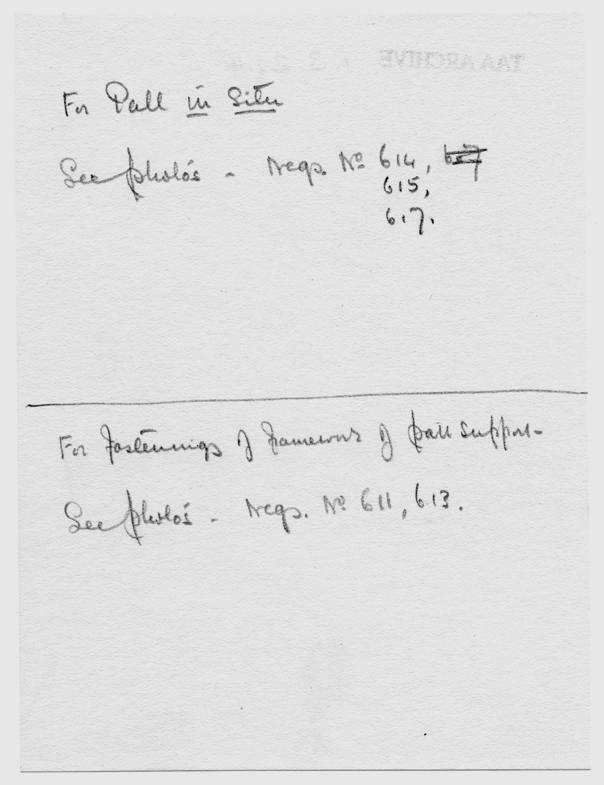 For Pall in Situ
See photo's - Negs. Nº 614,
615,
617.
For fastenings of framework of pall support-
See photo's - Negs. Nº 611, 613.